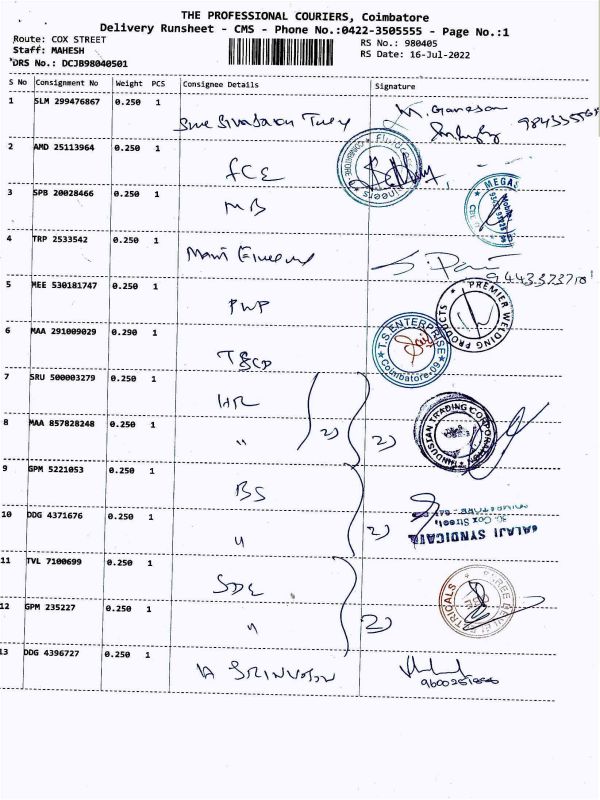 THE PROFESSIONAL COURIERS, Coimbatore
Delivery Runsheet - CMS - Phone No.:0422-3505555 - Page No.:1
Route: COX STREET
Staff: MAHESH
DRS No.: DCJB98040501
RS No.: 980405
RS Date: 16-Jul-2022
S No Consignment No Weight PCS Consignee Details Signature
1 SLM 299476867 0.250 1 M. Ganesan
2 AMD 25113964 0.250 1 FCE
3 SPB 20028466 0.250 1 MB MEGAS
4 TRP 2533542 0.250 1 Mani
9443373710
5 MEE 530181747 0.250 1 PWP PREMIER WELDING PRODUCTS
6 MAA 291009029 0.290 1 T.S ENTERPRISE Coimbatore-09
7 SRU 500003279 0.250 1 HR
8 MAA 857828248 0.250 1 " 2) 2) HINDUSTAN TRADING CORPORATION
9 GPM 5221053 0.250 1 BS
10 DDG 4371676 0.250 1 " 2) BALAJI SYNDICATE
Cox Street,
11 TVL 7100699 0.250 1 SDE
12 GPM 235227 0.250 1 " 2)
13 DDG 4396727 0.250 1